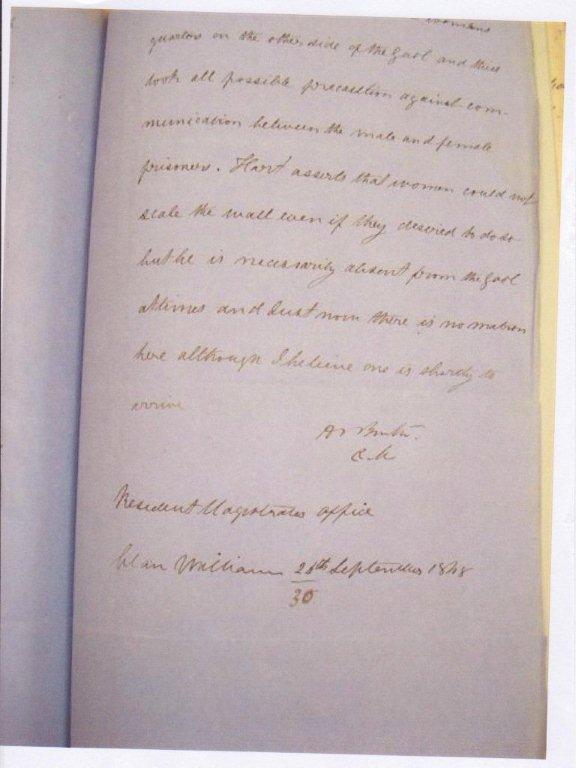 womans
quarters on the other side of the Gaol and thus
took all possible precaution against com-
munication between the male and female
prisoners. Hart asserts that women could not
scale the wall even if they desired to do so
but he is necessarily absent from the Gaol
at times and just now there is no matron
here although I believe one is shortly to
arrive
Resident Magistrates office
William 28th September
30